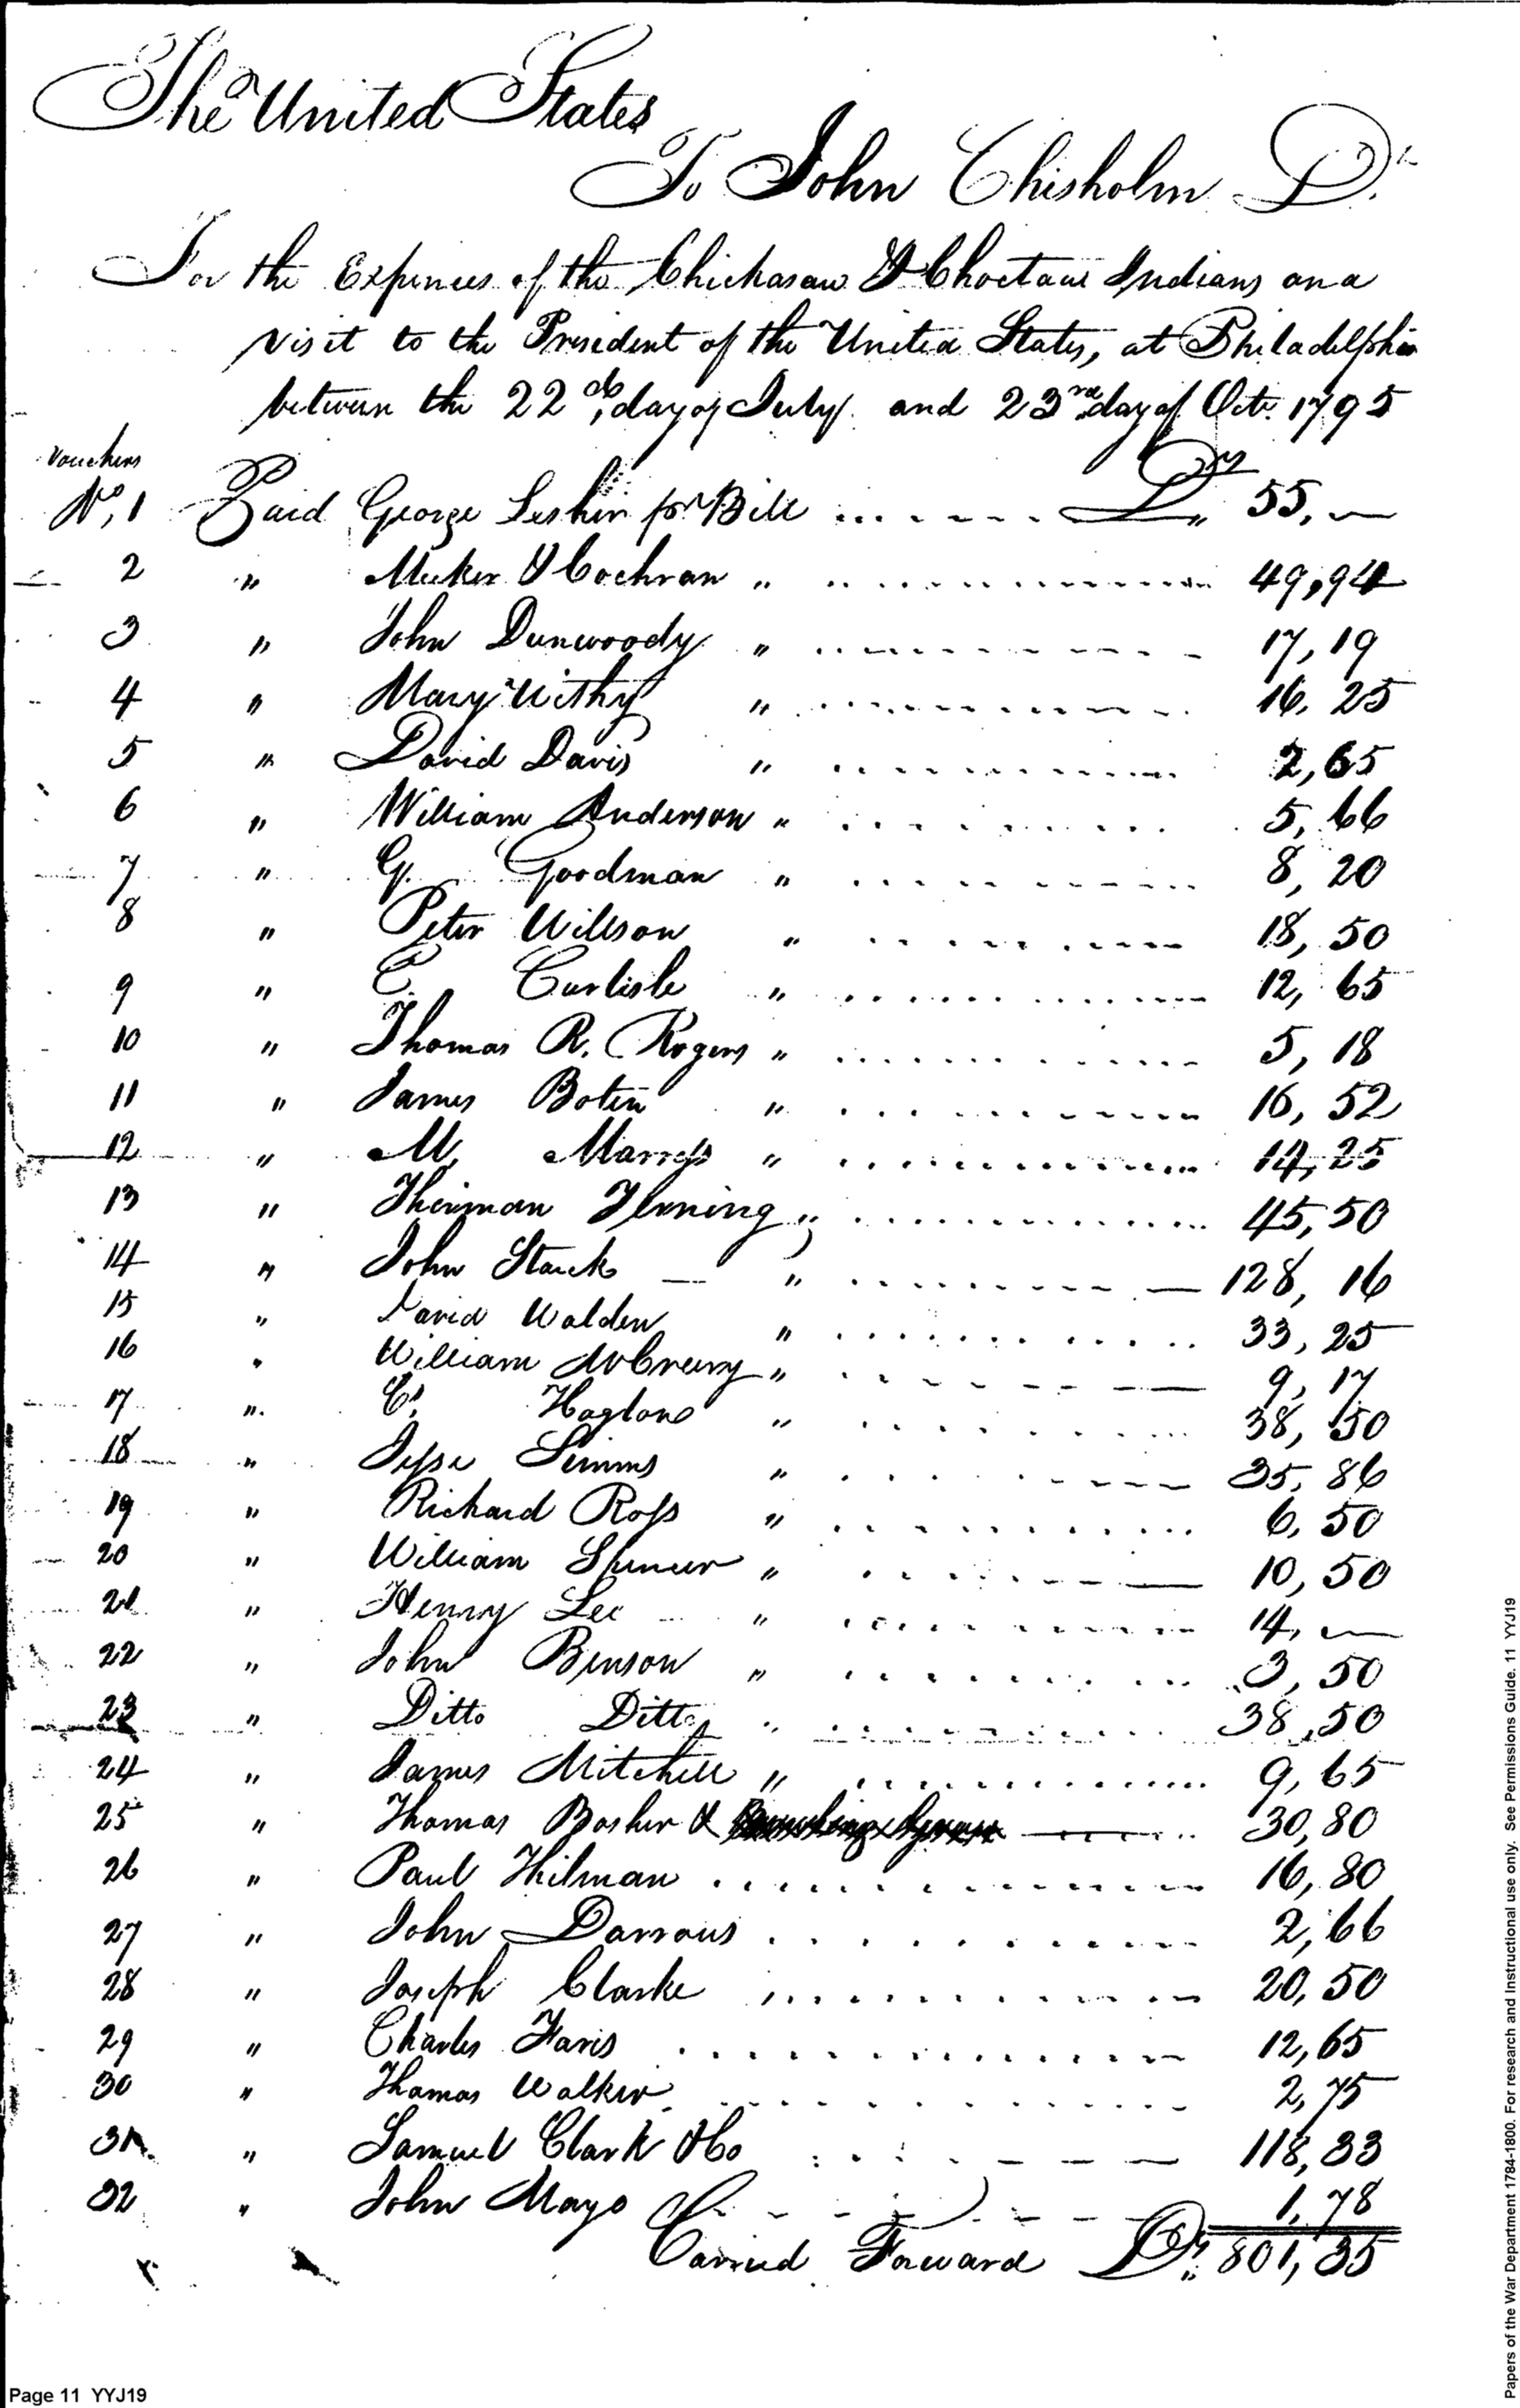 The United States
To John Chisholm Dr.
For the Expences of the Chickasaw & Choctaw Indians on a
visit to the President of the United States, at Philadelphia
between the 22d, day of July and 23rd day of Octr. 1795
Vouchers
No, 1 Paid George Leshir pr Bill ... Drs 55, —
2 " Meeker & Cochran " ... 49,94
3 " John Dunwoody " ... 17,19
4 " Mary Withy " ... 16,25
5 " David Davis " ... 2,65
6 " William Anderson " ... 5,66
7 " G. Goodman " ... 8,20
8 " Peter Willson " ... 18,50
9 " C. Carlisle " ... 12,65
10 " Thomas R. Rogers " ... 5,18
11 " James Boten " ... 16,52
12 " M. " ... 14,25
13 " Fleming " ... 45,50
14 " John Stark — " ... 128,16
15 " David Walden " ... 33,25
16 " William McCreery " ... 9,17
17 " C. " ... 38,50
18 " Jesse Simms " ... 35,86
19 " Richard Ross " ... 6,50
20 " William Spencer " ... 10,50
21 " Henry Lee " ... 14, —
22 " John Benson " ... 3,50
23 " Ditto Ditto " ... 38,50
24 " James Mitchell " ... 9,65
25 " Thomas Bosher & ... 30,80
26 " Paul Hilman ... 16,80
27 " John Darrous ... 2,66
28 " Joseph Clarke ... 20,50
29 " Charles Faris ... 12,65
30 " Thomas Walker ... 2,75
31 " Samuel Clark & Co ... 118,33
32 " John Mayo ... 1,78
Carried Faward Drs 801,35
Page 11 YYJ19
Papers of the War Department 1784-1800. For research and Instructional use only. See Permissions Guide. 11 YYJ19